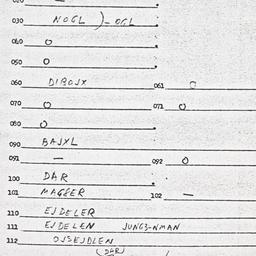 030 NOGL )-OGL
040 O
050 O
060 DIBOJX 061 O
070 O 071 O
080 O
090 BAJXL
091 — 092 O
100 DAR
101 MAGGER 102 —
110 EJDELER
111 EJDELEN JUNGS-NMAN
112 OJSEJDLEN
(DAR)